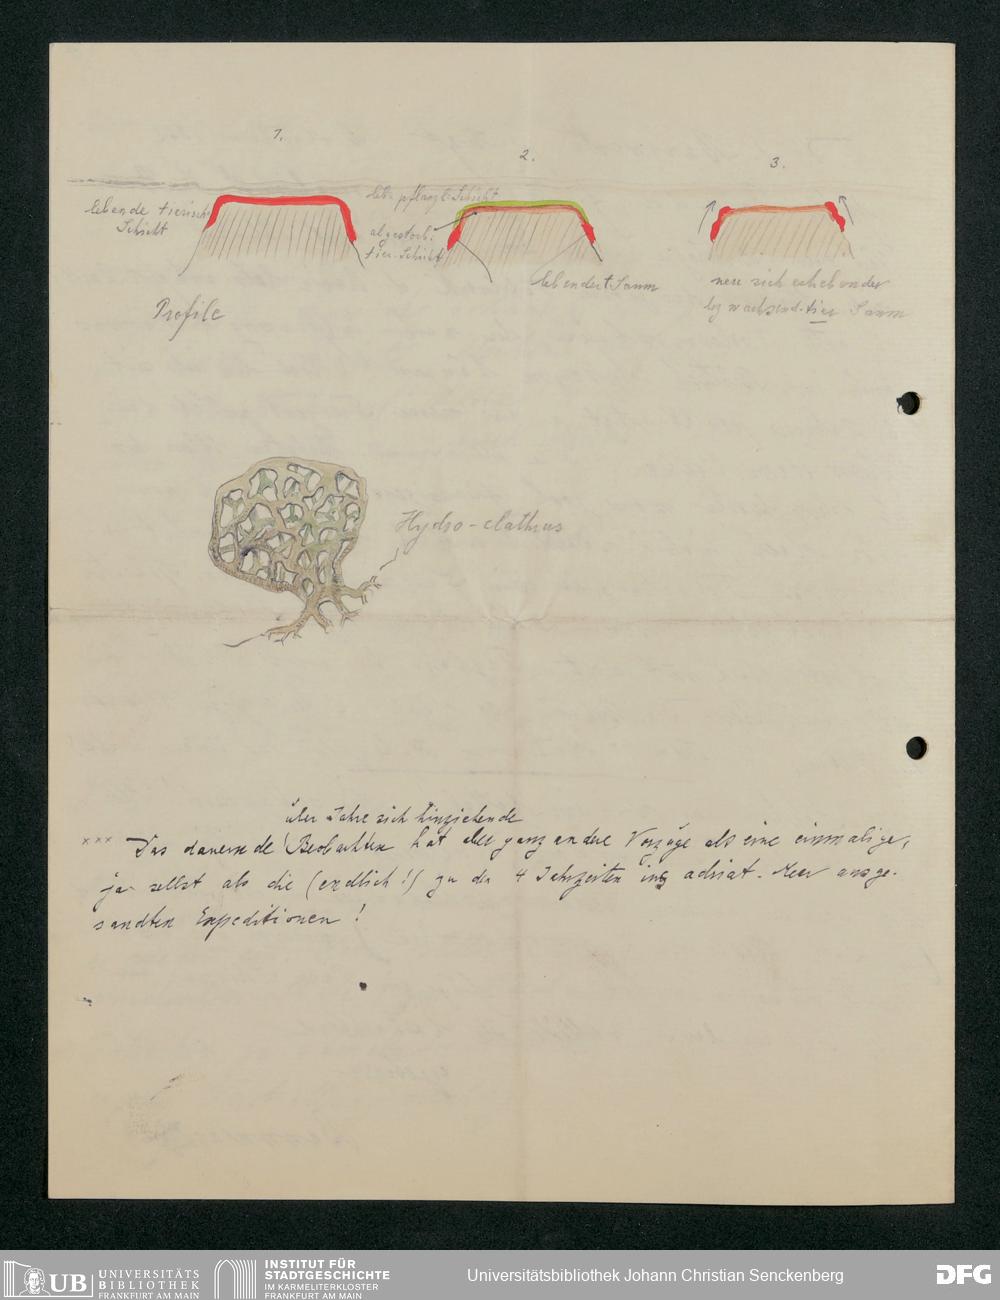 1.
2.
3.
lebende tierische
Schicht
leb. pflanzl. Schicht
abgestorb.
tier. Schicht
lebender t. Saum
neu sich erhebender
tier Saum
Profile
Hydro-clathrus
über Jahre sich hinziehende
××× Das dauernde Beobachten hat aber ganz andere Vorzüge als eine einmalige,
ja selbst als die (endlich!) zu den 4 Jahrzeiten ins adriat. Meer ausge-
sandten Expeditionen!
UB UNIVERSITÄTS
BIBLIOTHEK
FRANKFURT AM MAIN
INSTITUT FÜR
STADTGESCHICHTE
IM KARMELITERKLOSTER
FRANKFURT AM MAIN
Universitätsbibliothek Johann Christian Senckenberg
DFG